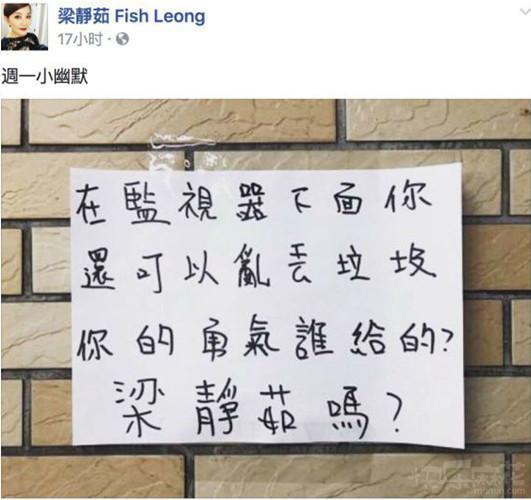 梁靜茹 Fish Leong
17小时 ·
週一小幽默
在監視器下面你
還可以亂丟垃圾
你的勇氣誰給的?
梁靜茹嗎?